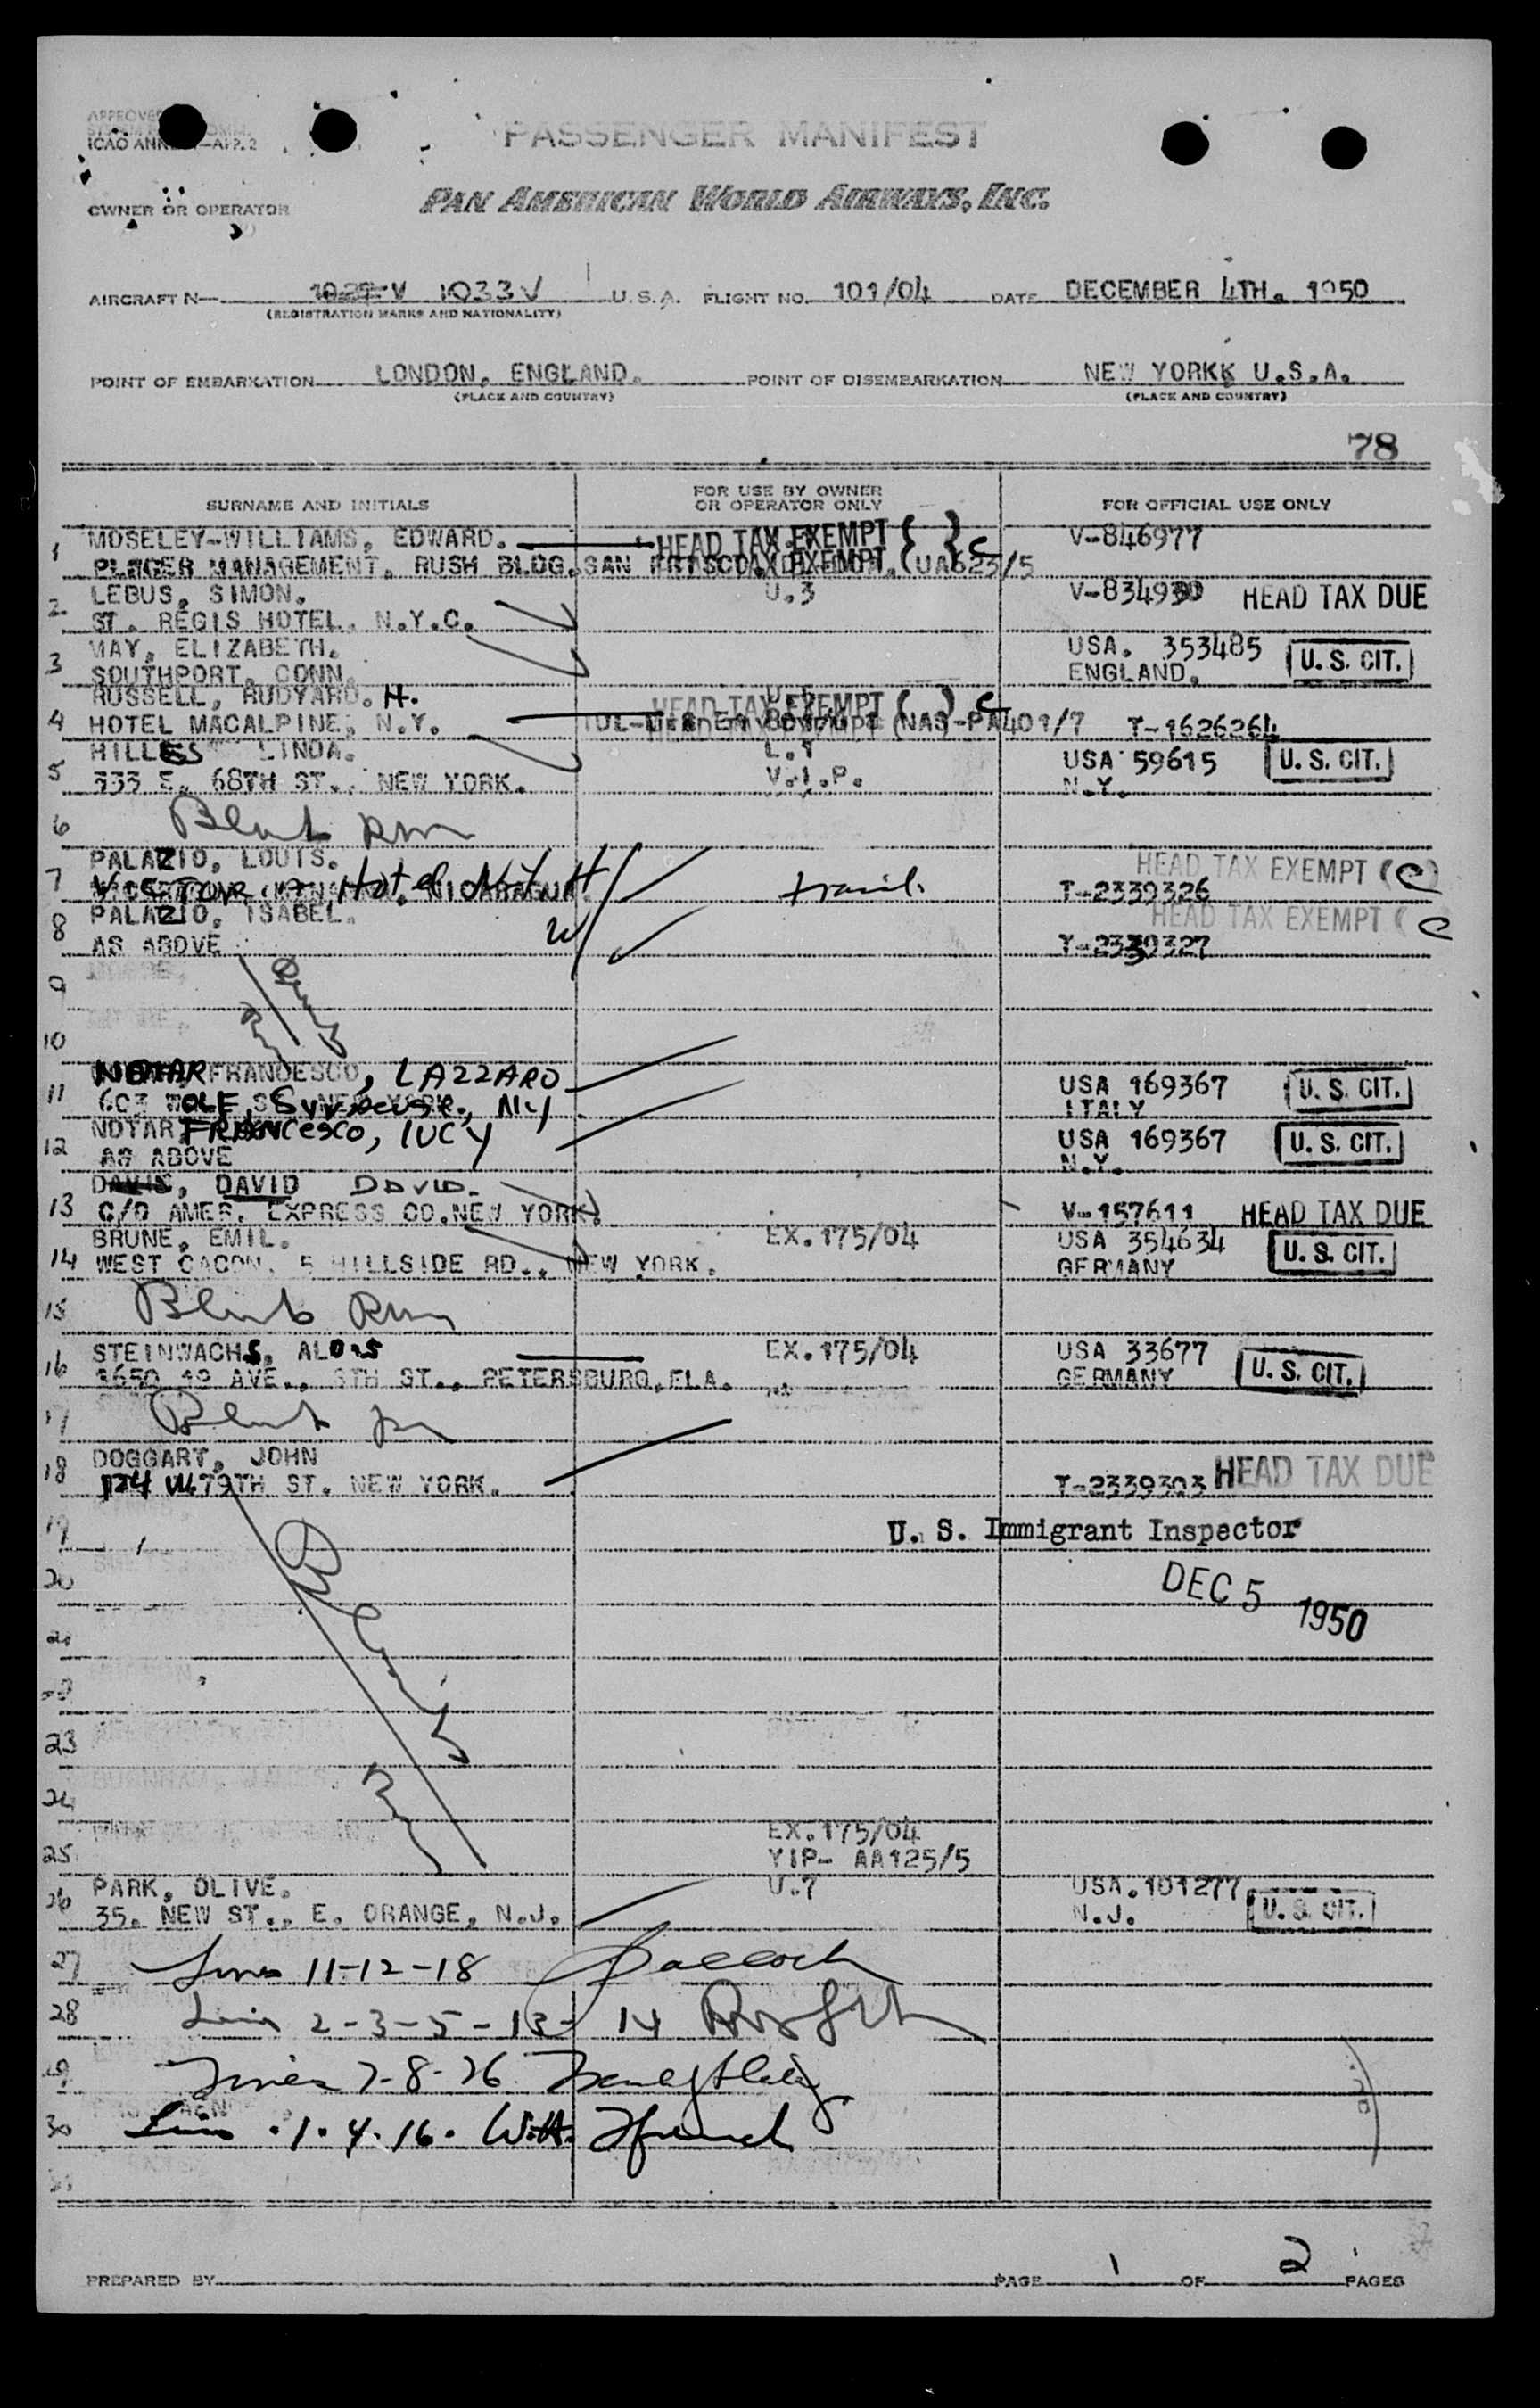 PASSENGER MANIFEST
ICAO ANNEX
OWNER OR OPERATOR
PAN AMERICAN WORLD AIRWAYS, INC.
AIRCRAFT N— 1033V U.S.A. FLIGHT NO. 101/04 DATE DECEMBER 4TH. 1950
(REGISTRATION MARKS AND NATIONALITY)
POINT OF EMBARKATION LONDON, ENGLAND. POINT OF DISEMBARKATION NEW YORKK U.S.A.
(PLACE AND COUNTRY) (PLACE AND COUNTRY)
78
SURNAME AND INITIALS
FOR USE BY OWNER OR OPERATOR ONLY
FOR OFFICIAL USE ONLY
1 MOSELEY-WILLIAMS, EDWARD. HEAD TAX EXEMPT ( ) C V-846977
MANAGEMENT, RUSH BLDG. SAN UA623/5
2 LEBUS, SIMON. U.3 V-834930 HEAD TAX DUE
ST. REGIS HOTEL, N.Y.C.
3 MAY, ELIZABETH. USA. 353485 U. S. CIT.
SOUTHPORT, CONN. ENGLAND.
4 RUSSELL, RUDYARD. H. HEAD TAX EXEMPT ( ) C
HOTEL MACALPINE, N.Y. (NAS-PA401/7 T-1626264
5 HILLES LINDA. L.T USA 59615 U. S. CIT.
333 E. 68TH ST., NEW YORK. V.I.P. N.Y.
6 Blank
7 PALAZIO, LOUIS. HEAD TAX EXEMPT (C)
Hotel T-2339326
8 PALAZIO, ISABEL. HEAD TAX EXEMPT ( C
AS ABOVE T-2339327
9
10
11 NOTARFRANCESCO, LAZZARO USA 169367 U. S. CIT.
603 WOLF S Syracuse, NY ITALY
12 NOTAR FRANCesco, LUCY USA 169367 U. S. CIT.
AS ABOVE N.Y.
13 DAVIS, DAVID DAVID.
C/O AMER. EXPRESS CO. NEW YORK. V-157611 HEAD TAX DUE
14 BRUNE, EMIL. EX.175/04 USA 354634 U. S. CIT.
WEST 5 HILLSIDE RD., NEW YORK. GERMANY
15 Blank
16 STEINWACHS, ALOIS EX.175/04 USA 33677 U. S. CIT.
AVE., 8TH ST., PETERSBURG, FLA. GERMANY
17 Blank
18 DOGGART, JOHN
124 W 79TH ST. NEW YORK. T-2339303 HEAD TAX DUE
19 U. S. Immigrant Inspector
20 DEC 5 1950
21
23
24
EX.175/04
25 YIP- AA125/5
26 PARK, OLIVE. U.7 USA.101277 U. S. CIT.
35. NEW ST., E. ORANGE, N.J. N.J.
27 Lines 11-12-18
28 Lines 2-3-5-13- 14
29 Lines 7-8-26
30 Lines .1.4.16. W.H. French
PREPARED BY PAGE 1 OF 2 PAGES